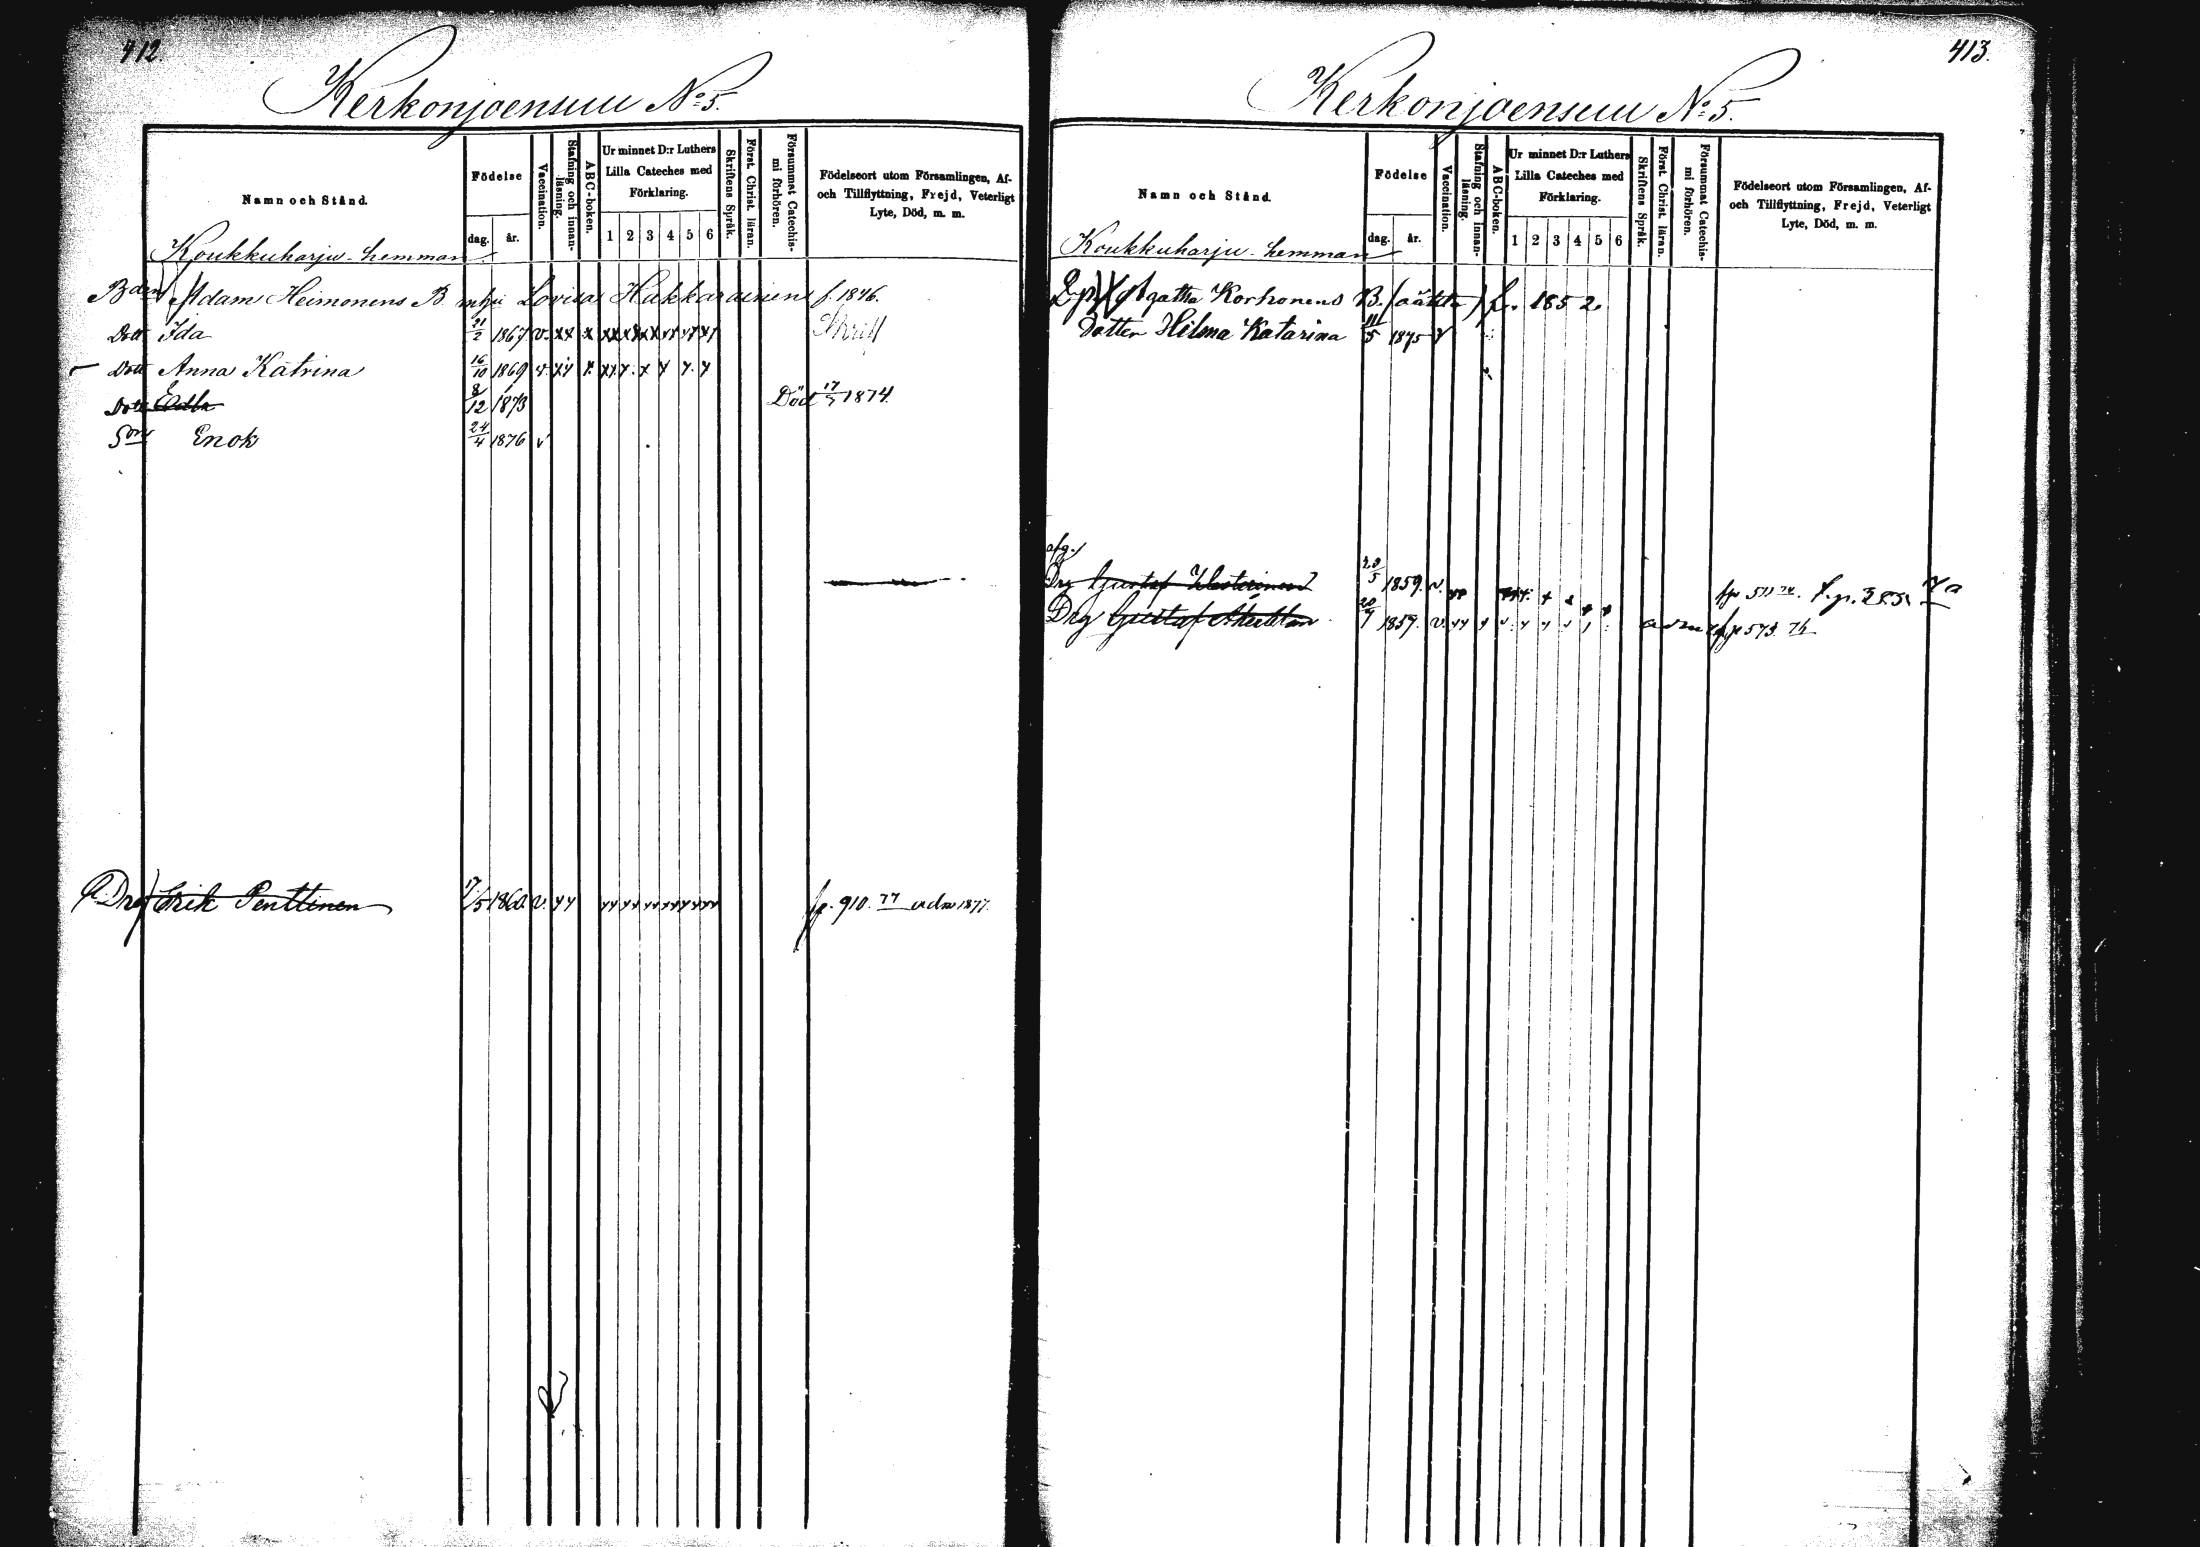 412.
Kerkonjoensuu No 5.
Namn och Stånd.
Födelse
dag.
år.
Vaccination.
Stafning och innan-
läsning.
ABC-boken.
Ur minnet D:r Luthers
Lilla Cateches med
Förklaring.
1 2 3 4 5 6
Skriftens Språk.
Först. Christ. läran.
Försummat Catechis-
mi förhören.
Födelseort utom Församlingen, Af-
och Tillflyttning, Frejd, Veterligt
Lyte, Död, m. m.
Koukkuharju hemman
Adam Heimonens B Lovisa Hakkarainens f. 1846.
Dott Ida 21/2 1867 v. xx x
Dott Anna Katrina 16/10 1869 v.
Dott Edla 8/12 1873 Död 17/7 1874.
Son Enok 24/4 1876 v
Drg Erik Penttinen 17/5 1860. v. xx fp. 910. 77 adm 1877.
413.
Kerkonjoensuu No 5.
Namn och Stånd.
Födelse
dag.
år.
Vaccination.
Stafning och innan-
läsning.
ABC-boken.
Ur minnet D:r Luthers
Lilla Cateches med
Förklaring.
1 2 3 4 5 6
Skriftens Språk.
Först. Christ. läran.
Försummat Catechis-
mi förhören.
Födelseort utom Församlingen, Af-
och Tillflyttning, Frejd, Veterligt
Lyte, Död, m. m.
Koukkuharju hemman
Agatha Korhonens B. f. 1852.
Dotter Hilma Katarina 11/5 1875 v
afg.
Drg Gustaf 5 1859. v.
Drg Gustaf 1859. v. fp 573. 76